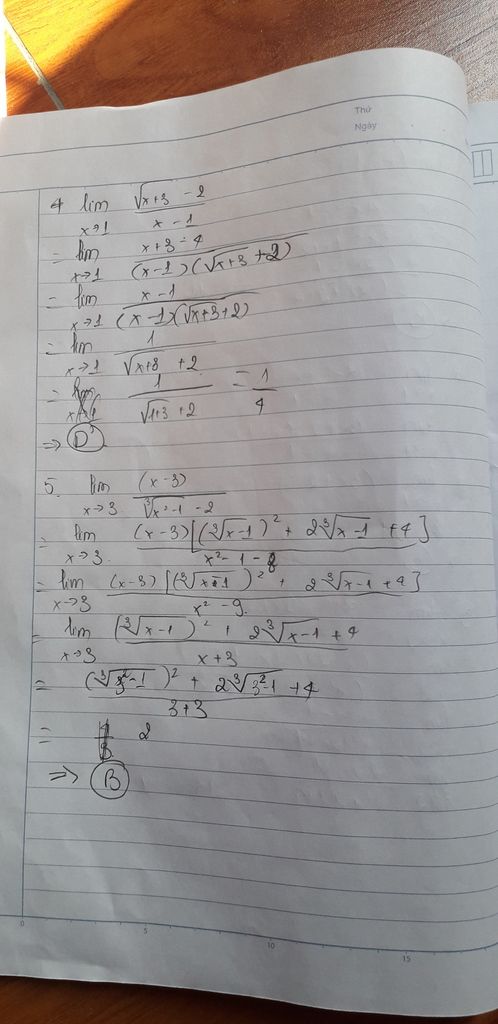 Thứ
Ngày
4 lim_{x→1} (√(x+3) - 2)/(x - 1)
= lim_{x→1} (x+3-4)/((x-1)(√(x+3) + 2))
= lim_{x→1} (x-1)/((x-1)(√(x+3)+2))
= lim_{x→1} 1/(√(x+3) + 2)
= 1/(√(1+3) + 2) = 1/4
=> D
5. lim_{x→3} (x-3)/(∛(x²-1) - 2)
= lim_{x→3} (x-3)[(∛(x-1))² + 2∛(x-1) + 4]/(x²-1-8)
= lim_{x→3} (x-3)[(∛(x-1))² + 2∛(x-1) + 4]/(x²-9)
= lim_{x→3} ((∛(x-1))² + 2∛(x-1) + 4)/(x+3)
= ((∛(3²-1))² + 2∛(3²-1) + 4)/(3+3)
= 2
=> B
0 5 10 15